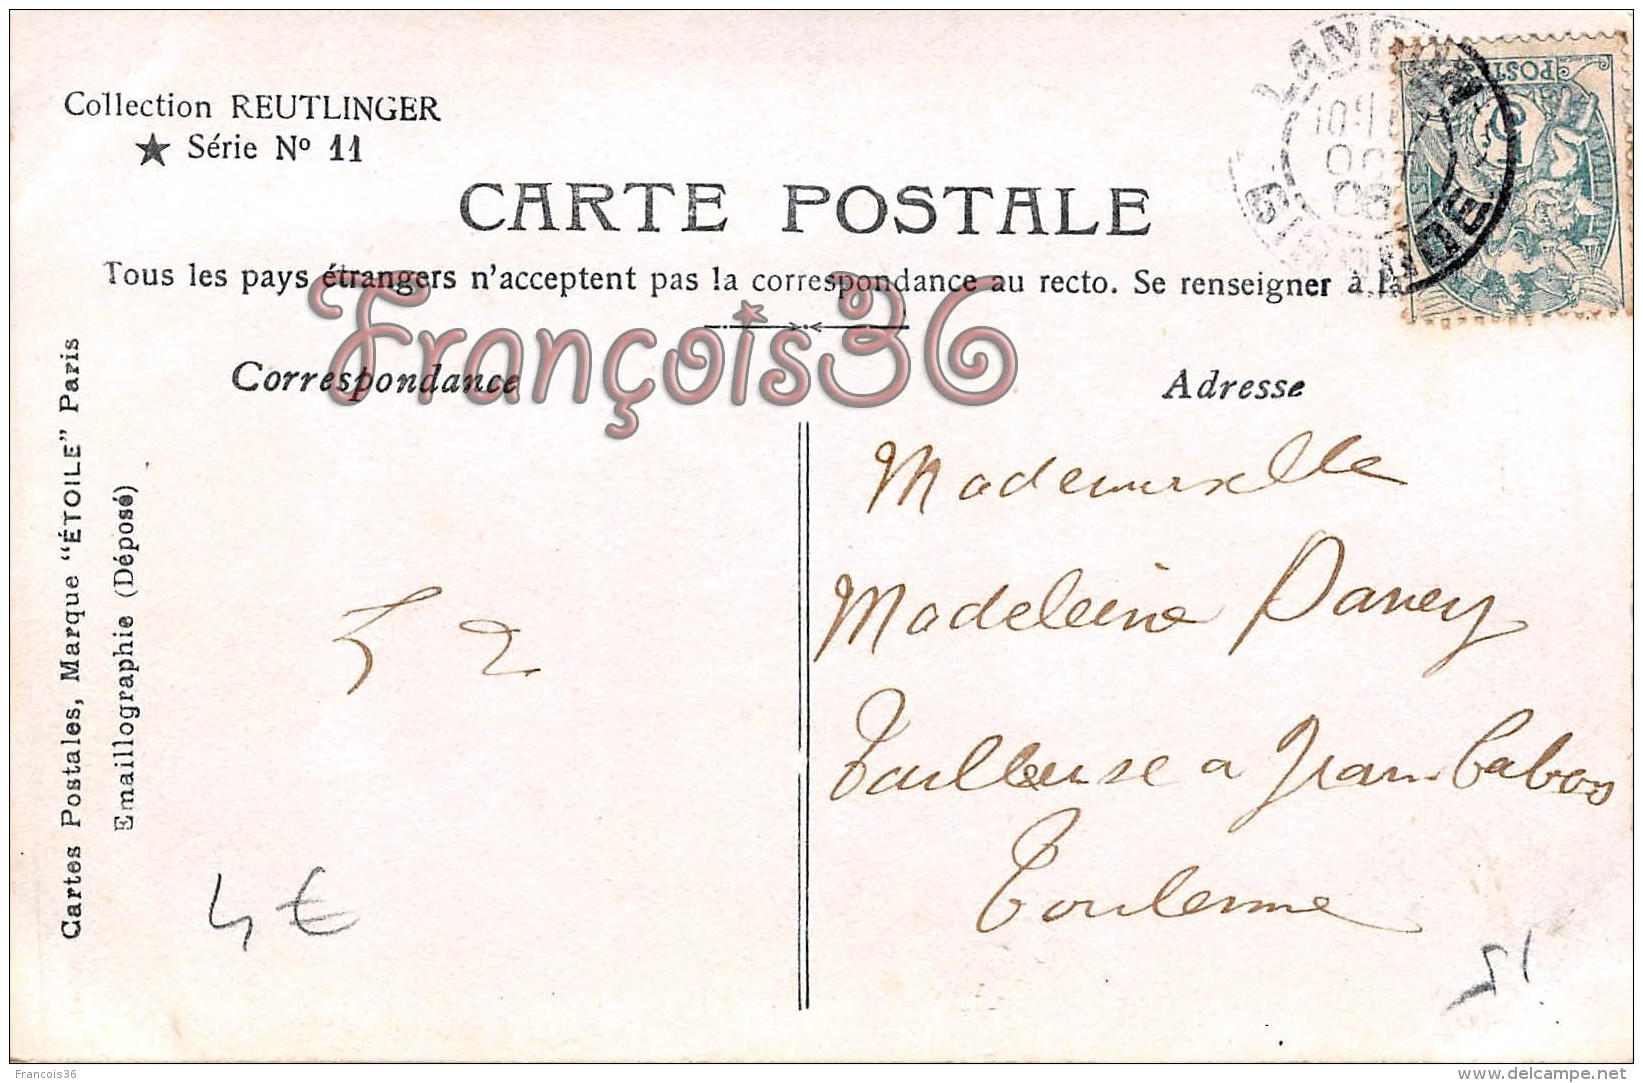 Collection REUTLINGER
★ Série Nº 11
CARTE POSTALE
Tous les pays étrangers n'acceptent pas la correspondance au recto. Se renseigner à la
François36
Correspondance
Adresse
Cartes Postales, Marque "ÉTOILE" Paris
Emaillographie (Déposé)
LANGON
GIRONDE
POSTES
Mademoiselle
Madeleine Darrey
Tailleuse a
Toulenne
52
4€
51
Francois36
delcampe.net